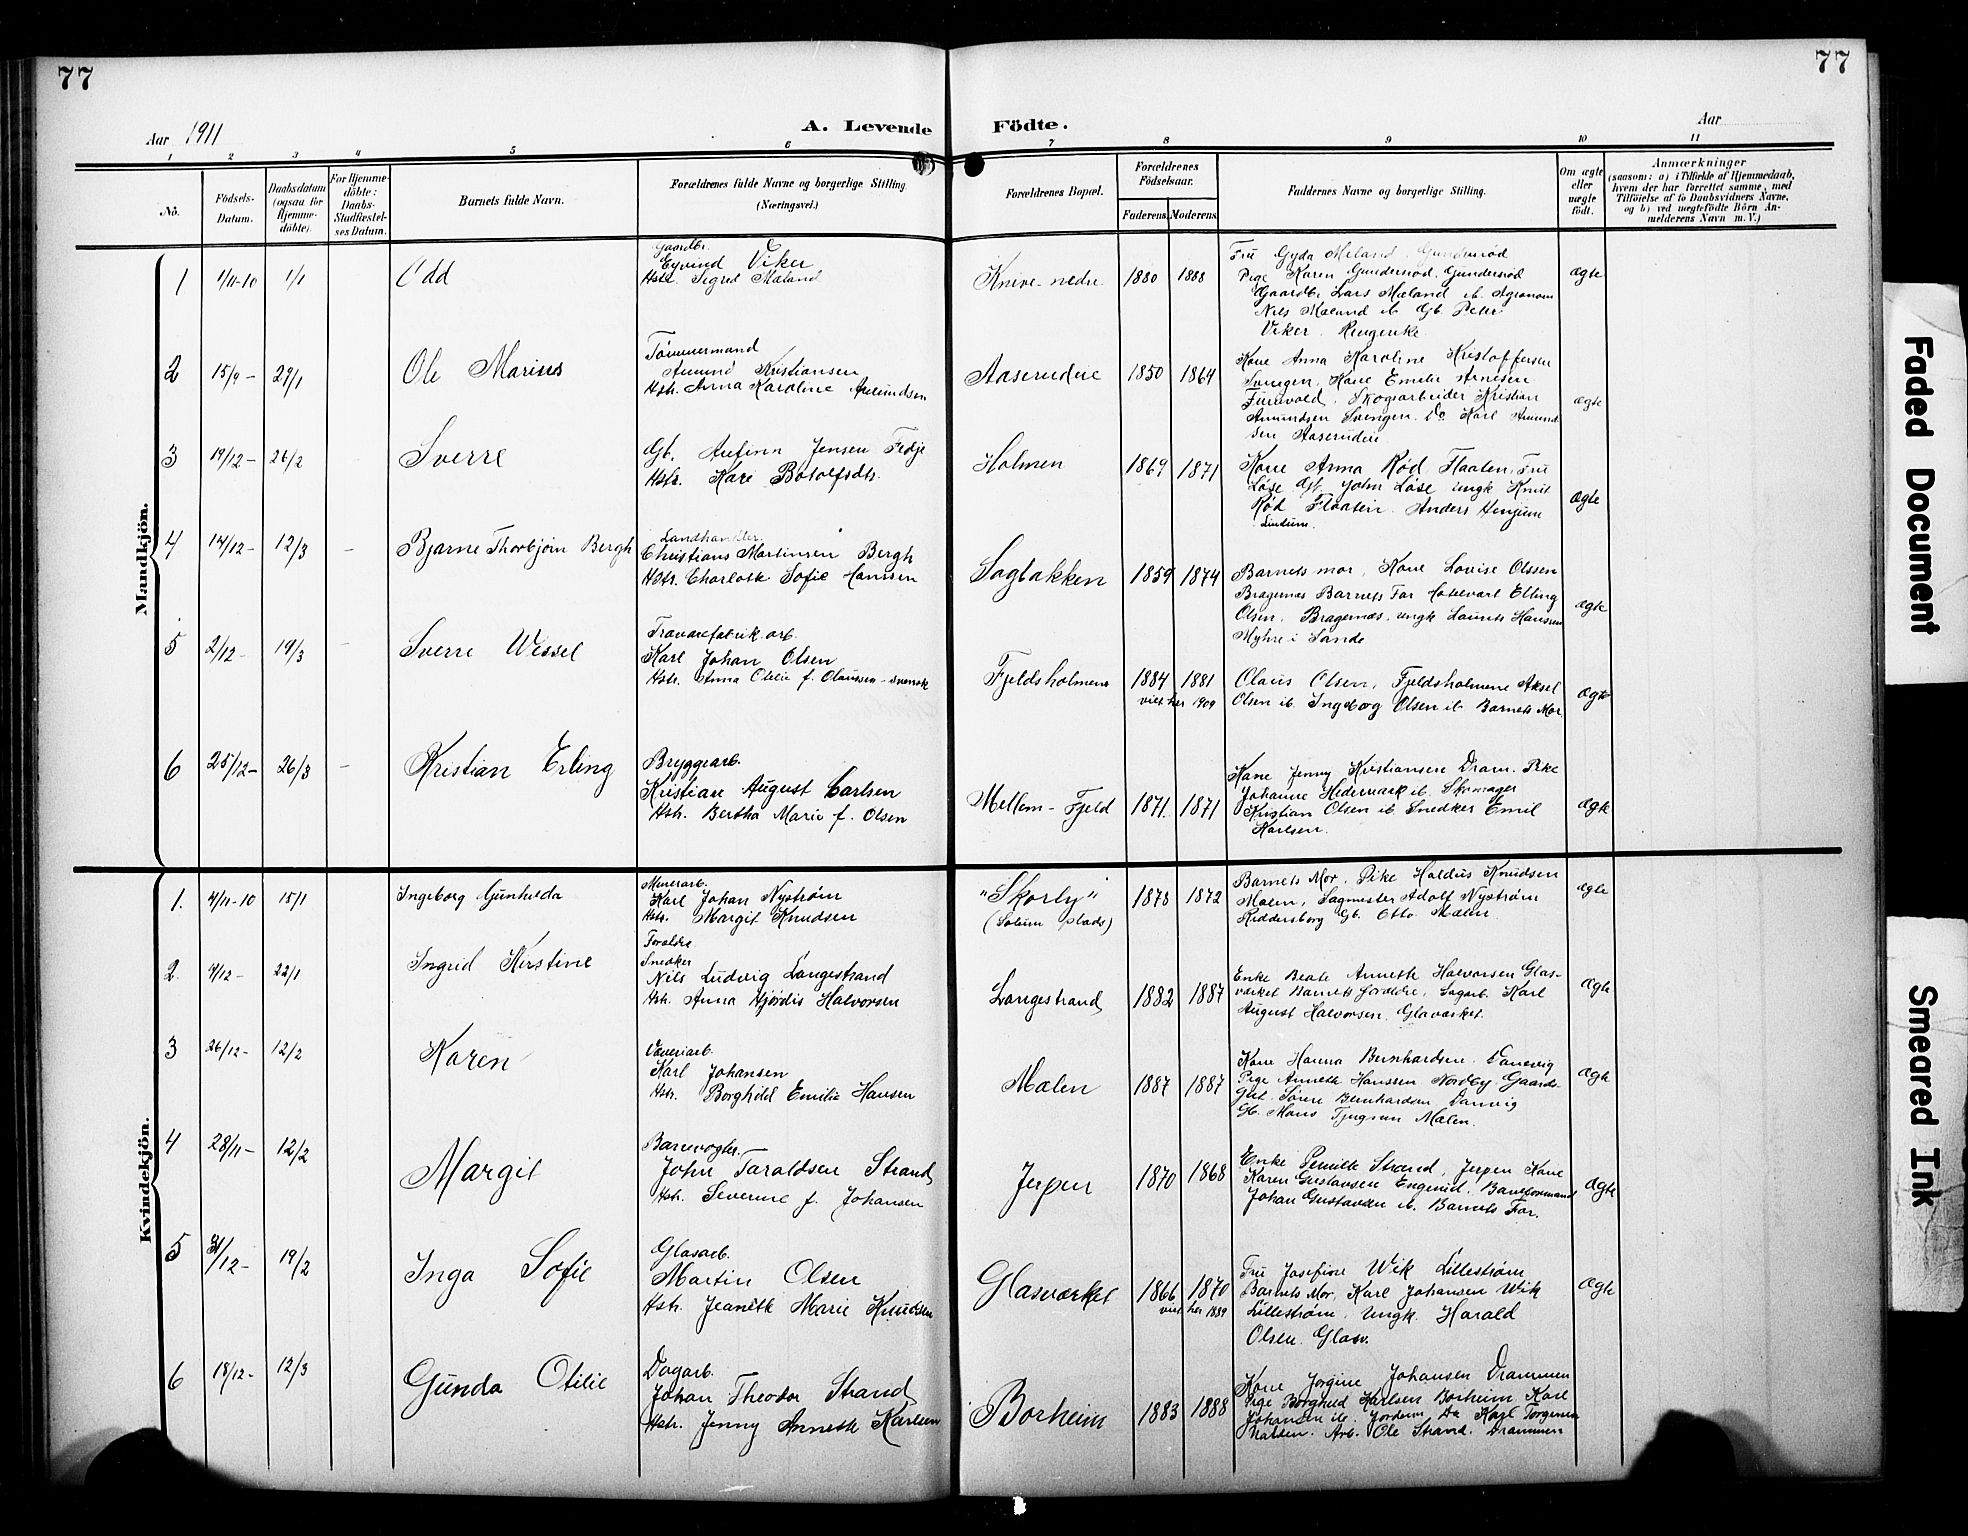 77
77
Aar 1911
A. Levende
Födte.
Aar
1 2 3 4 5 6 7 8 9 10 11
No.
Födsels-
Datum.
Daabsdatum
(ogsaa for
Hjemme-
döbte).
For Hjemme-
döbte:
Daabs-
Stadfæstel-
ses Datum.
Barnets fulde Navn.
Forældrenes fulde Navne og borgerlige Stilling.
(Næringsvei.)
Forældrenes Bopæl.
Forældrenes
Födselsaar.
Faderens. Moderens.
Faddernes Navne og borgerlige Stilling.
Om ægte
eller
uægte
födt.
Anmærkninger
(saasom: a) i Tilfælde af Hjemmedaab,
hvem der har forrettet samme, med
Tilföielse af to Daabsvidners Navne,
og b) ved uægtefödte Börn An-
melderens Navn m. V.)
Mandkjön.
1 1/11-10 1/1 Odd
Gaardbr.
Eyvind Viker
Hstr. Sigrid Mæland
Knive-nedre 1880 1888
Fru Gyda Mæland, Gundersrød
Pige Karen Gundersrød, Gundersrød
Gaardbr. Lars Mæland ib. Agronom
Nils Mæland ib. Gb. Peter
Viker. Ringerike.
ægte
2 15/9- 29/1 Ole Marius
Tømmermand
Amund Kristiansen
Hstr. Anna Karoline Amundsen
Aaserudeie 1850 1864
Kone Anna Karoline Kristoffersen
Svingen, Kone Emilie Arnesen
Furuvold, Skogsarbeider Kristian
Amundsen Svengen. Do Karl Amund-
sen Aaserudeie
ægte
3 19/12- 26/2 Sverre
Gb. Arfinn Jensen Fedje
Hstr. Kari Botolfsdtr.
Holmen 1869 1871
Kone Anna Rød Flaaten, Fru
Løse, Gb. John Løse ungk. Knut
Rød Flaaten. Anders
Lindum.
ægte
4 14/12- 12/3 - Bjarne Thorbjørn Bergh
Landhandler
Christians Martinsen Bergh
Hstr. Charlotte Sofie Hanssen
Sagbakken 1859 1874
Barnets mor, Kone Lovise Olssen
Bragernæs Barnets Far Elling
Olsen, Bragernæs, ungk Laurits Hanssen
Myhre i Sande
ægte
5 2/12- 19/3 - Sverre Wessel
Trævarefabrik.arb.
Karl Johan Olsen
Hstr. Anna Otelie f. Olaussen - svensk
Fjeldsholmene 1884 1881
viet her 1909
Olaus Olsen, Fjeldsholmene Aksel
Olsen ib. Ingeborg Olsen ib. Barnets Mor.
ægte
6 25/12- 26/3 - Kristian Erling
Bryggearb.
Kristian August Carlsen
Hstr. Bertha Marie f. Olsen
Mellem-Fjeld 1871. 1871
Kone Jenny Kristiansen Dram. Pike
Johanne Hedemark ib. Skomager
Kristian Olsen ib. Snedker Emil
Karlsen.
ægte
Kvindekjön.
1. 4/11-10 15/1 Ingeborg Gunhilda
Minerarb.
Karl Johan Nystrøm
Hstr. Margit Knudsen
"Skorby"
(Solum plads)
1878 1872
Barnets Mor, Pike Haldis Knudsen
Malen, Sagmester Adolf Nystrøm
Riddersborg Gb. Otto Mælen.
ægte
2. 4/12- 22/1 Ingrid Kirstine
Forældre
Snedker
Nils Ludvig Langestrand
Hstr. Anna Hjørdis Halvorsen
Langestrand 1882 1887
Enke Beate Annette Halvorsen Glas-
værket Barnets forældre, Sagarb. Karl
August Halvorsen. Glaværket.
ægte
3 26/12- 12/2 Karen
Væveriarb.
Karl Johansen
Hstr. Borghild Emilie Hansen
Malen 1887 1887
Kone Hanna Bernhardsen. Danevig
Pige Annette Hanssen Nordby Gaards-
gut. Sören Bernhardsen Danvig
Gb. Hans Tjugum Mælen.
ægte
4 28/11- 12/2 Margit
Banevogter.
John Taraldsen Strand
Hstr. Severine f. Johansen
Jerpen 1870 1868
Enke Pernille Strand, Jerpen Kone
Karen Gustavsen Engerud. Baneformand
Johan Gustavsen ib. Barnets Far.
ægte
5 31/12- 19/2 Inga Sofie
Glasarb.
Martin Olsen
Hstr. Jeanette Marie Knudsen
Glasværket 1866 1870
viet her 1889
Fru Josefine Wik Lillestrøm
Barnets Mor, Karl Johansen Wik
Lillestrøm, Ungk. Harald
Olsen. Glasv.
ægte
6 18/12- 12/3 Gunda Otilie
Dagarb.
Johan Theodor Strand
Hstr. Jenny Annette Karlsen
Borheim 1883 1888
Kone Jorgine Johansen Drammen
Pige Borghild Karlsen Borheim Karl
Johansen ib. Do Karl Torgersen
Arb. Ole Strand. Drammen
Faded Document
Smeared Ink